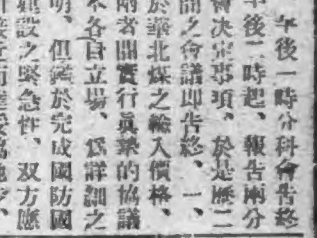 午後一時分科會告終
午後二時起、報告兩分
會決定事項、於是歷二
間之會議即告終、一、
於華北煤之輸入價格、
兩者間實行眞摯的協議
各自立場、爲詳細之
明、但鑑於完成國防國
建設之緊急性、双方應